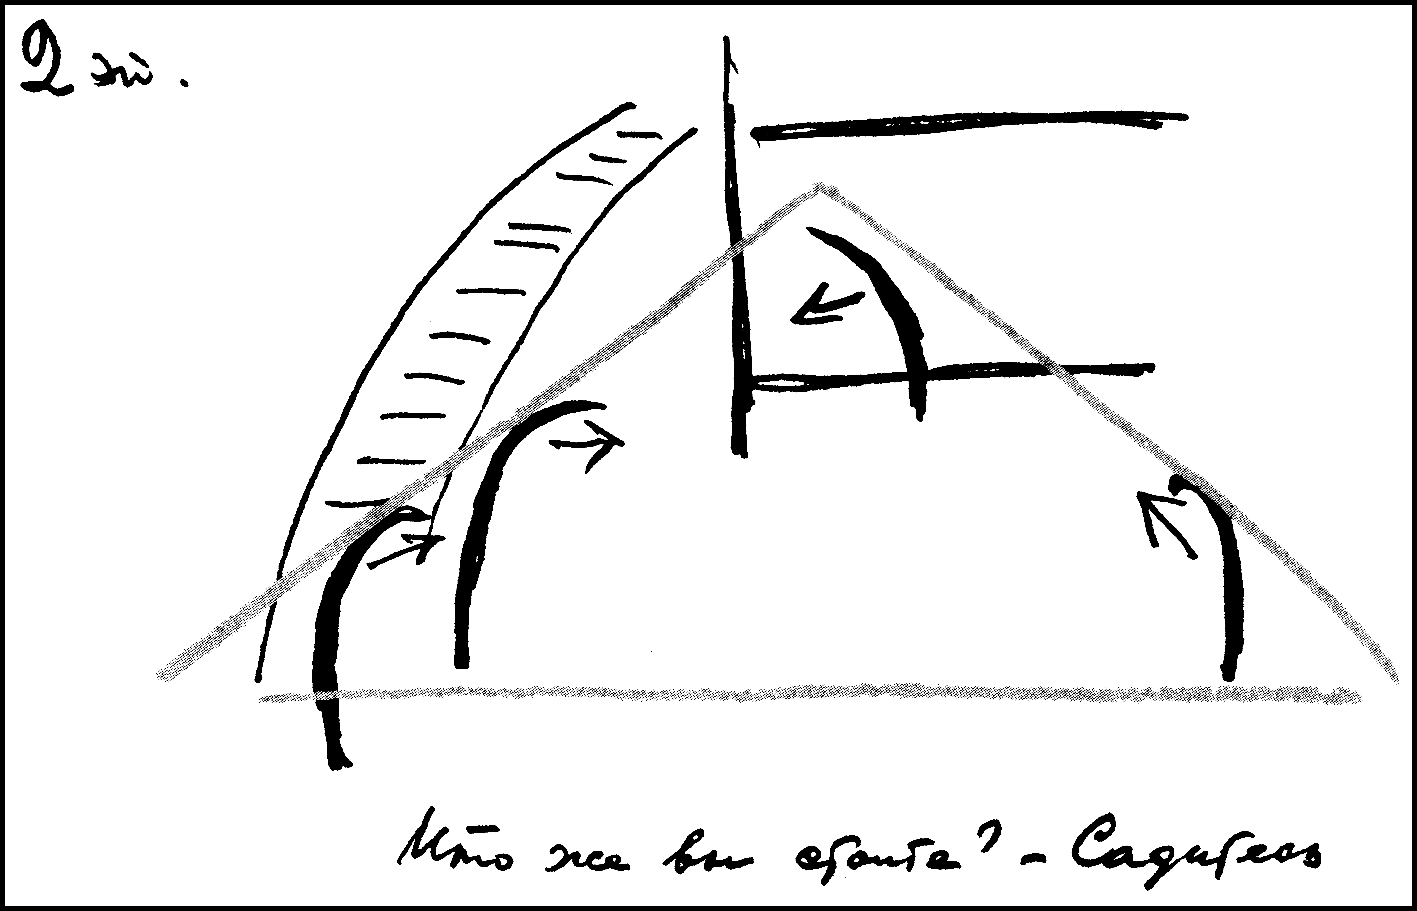 2 эт.
Что же вы стоите? – Садитесь